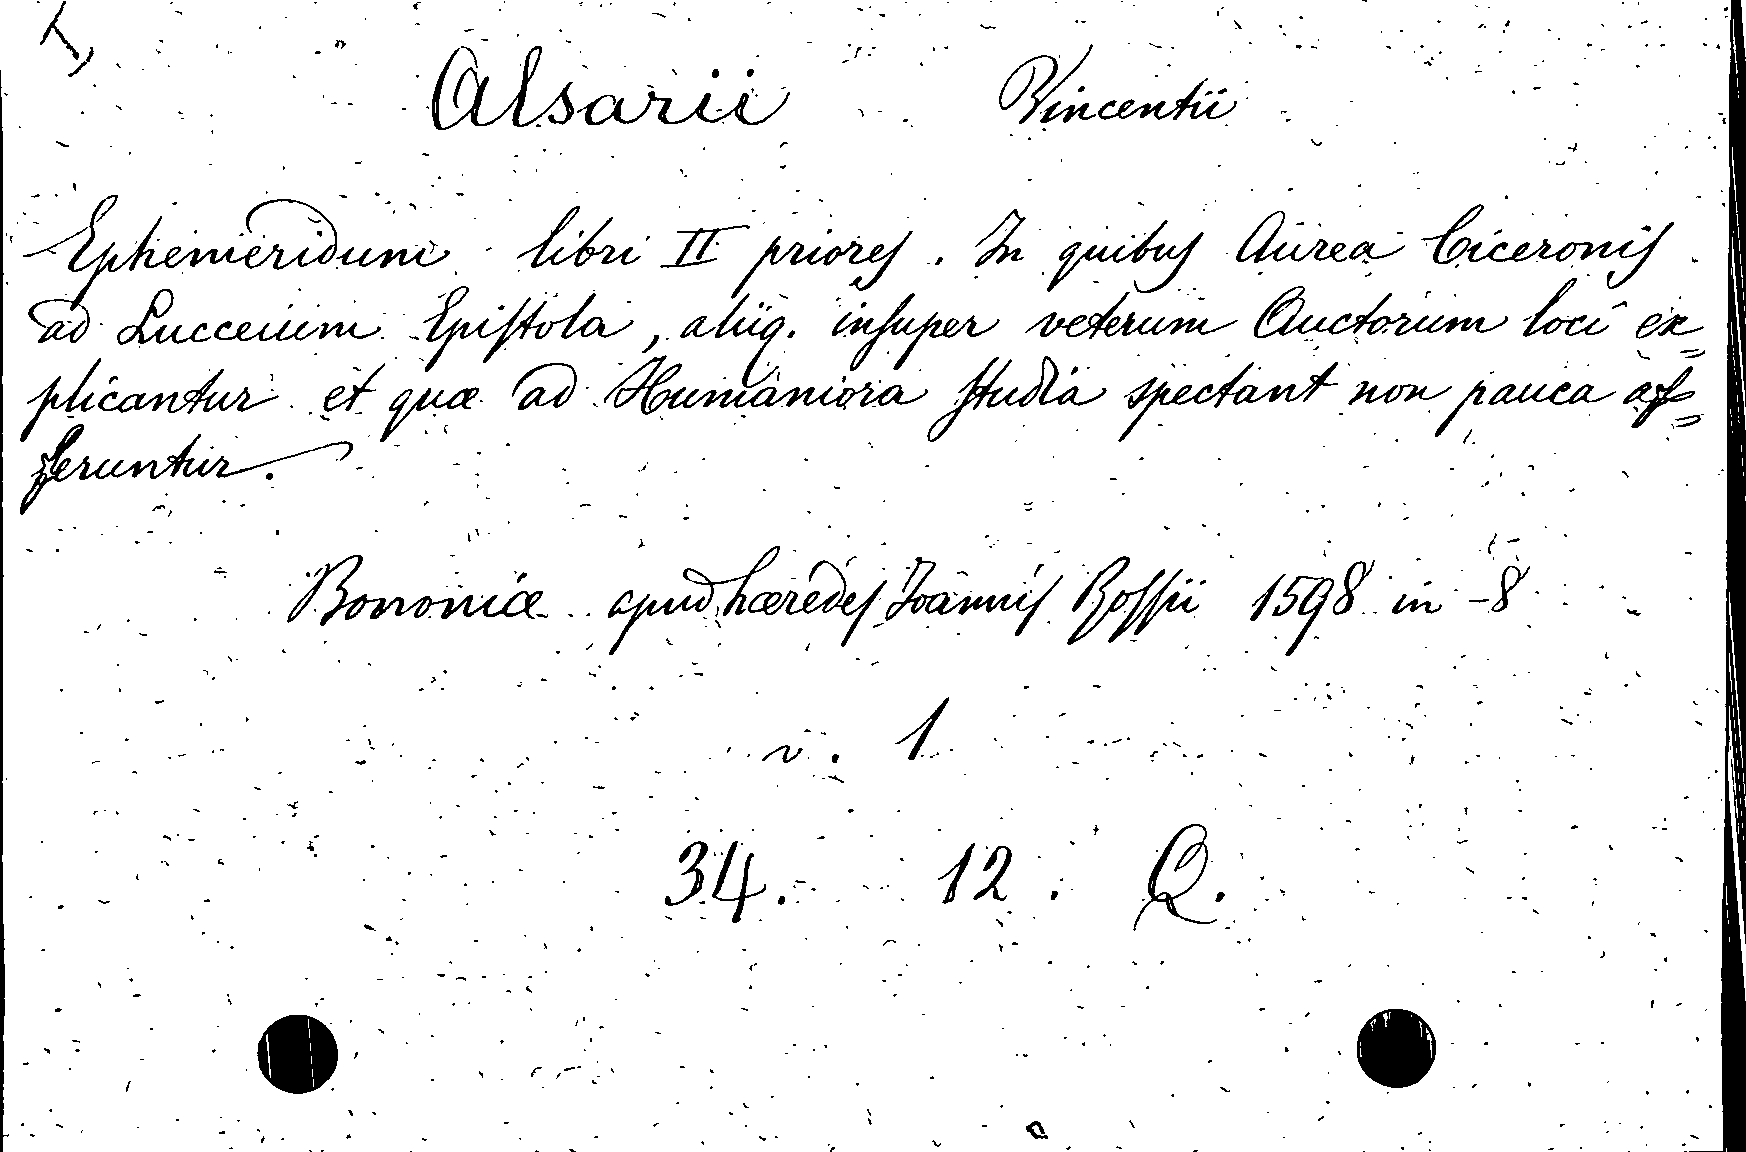 T,
Alsarii Vincentii
Ephemeridum libri II priores. In quibus Aurea Ciceronis
ad Lucceium Epistola, aliiq. insuper veterum Auctorum loci ex=
plicantur et quæ ad Humaniora studia spectant non pauca af=
feruntur.
Bononiæ apud hæredes Joannis Rossii 1598 in -8
v. 1
34. 12. Q.